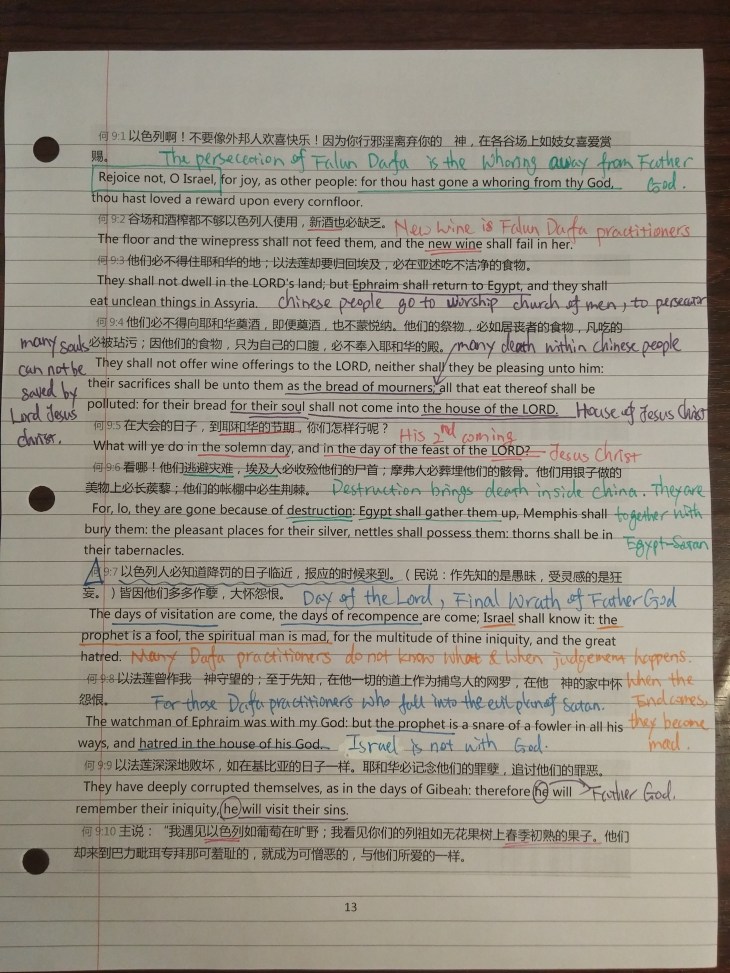 何 9:1 以色列啊！不要像外邦人欢喜快乐！因为你行邪淫离弃你的　神，在各谷场上如妓女喜爱赏
赐。
The persecection of Falun Dafa is the Whoring away from Father God.
Rejoice not, O Israel, for joy, as other people: for thou hast gone a whoring from thy God,
thou hast loved a reward upon every cornfloor.
何 9:2 谷场和酒榨都不够以色列人使用，新酒也必缺乏。 New Wine is Falun Dafa practitioners
The floor and the winepress shall not feed them, and the new wine shall fail in her.
何 9:3 他们必不得住耶和华的地；以法莲却要归回埃及，必在亚述吃不洁净的食物。
They shall not dwell in the LORD's land; but Ephraim shall return to Egypt, and they shall
eat unclean things in Assyria. Chinese people go to worship church of men, to persecutor
何 9:4 他们必不得向耶和华奠酒，即便奠酒，也不蒙悦纳。他们的祭物，必如居丧者的食物，凡吃的
必被玷污；因他们的食物，只为自己的口腹，必不奉入耶和华的殿。 many death within chinese people
many souls
can not be
saved by
Lord Jesus
christ.
They shall not offer wine offerings to the LORD, neither shall they be pleasing unto him:
their sacrifices shall be unto them as the bread of mourners; all that eat thereof shall be
polluted: for their bread for their soul shall not come into the house of the LORD. House of Jesus Christ
何 9:5 在大会的日子，到耶和华的节期，你们怎样行呢？ His 2nd coming
What will ye do in the solemn day, and in the day of the feast of the LORD? Jesus Christ
何 9:6 看哪！他们逃避灾难，埃及人必收殓他们的尸首；摩弗人必葬埋他们的骸骨。他们用银子做的
美物上必长蒺藜；他们的帐棚中必生荆棘。 Destruction brings death inside China. They are
together with
Egypt-Satan
For, lo, they are gone because of destruction: Egypt shall gather them up, Memphis shall
bury them: the pleasant places for their silver, nettles shall possess them: thorns shall be in
their tabernacles.
何 9:7 以色列人必知道降罚的日子临近，报应的时候来到。（民说：作先知的是愚昧，受灵感的是狂
妄。）皆因他们多多作孽，大怀怨恨。 Day of the Lord, Final Wrath of Father God
The days of visitation are come, the days of recompence are come; Israel shall know it: the
prophet is a fool, the spiritual man is mad, for the multitude of thine iniquity, and the great
hatred. Many Dafa practitioners do not know what & when judgement happens.
When the
End comes,
they become
mad.
何 9:8 以法莲曾作我　神守望的；至于先知，在他一切的道上作为捕鸟人的网罗，在他　神的家中怀
怨恨。 For those Dafa practitioners who fall into the evil plan of Satan.
The watchman of Ephraim was with my God: but the prophet is a snare of a fowler in all his
ways, and hatred in the house of his God. Israel is not with God.
何 9:9 以法莲深深地败坏，如在基比亚的日子一样。耶和华必记念他们的罪孽，追讨他们的罪恶。
They have deeply corrupted themselves, as in the days of Gibeah: therefore he will Father God.
remember their iniquity, he will visit their sins.
何 9:10 主说：“我遇见以色列如葡萄在旷野；我看见你们的列祖如无花果树上春季初熟的果子。他们
却来到巴力毗珥专拜那可羞耻的，就成为可憎恶的，与他们所爱的一样。
13